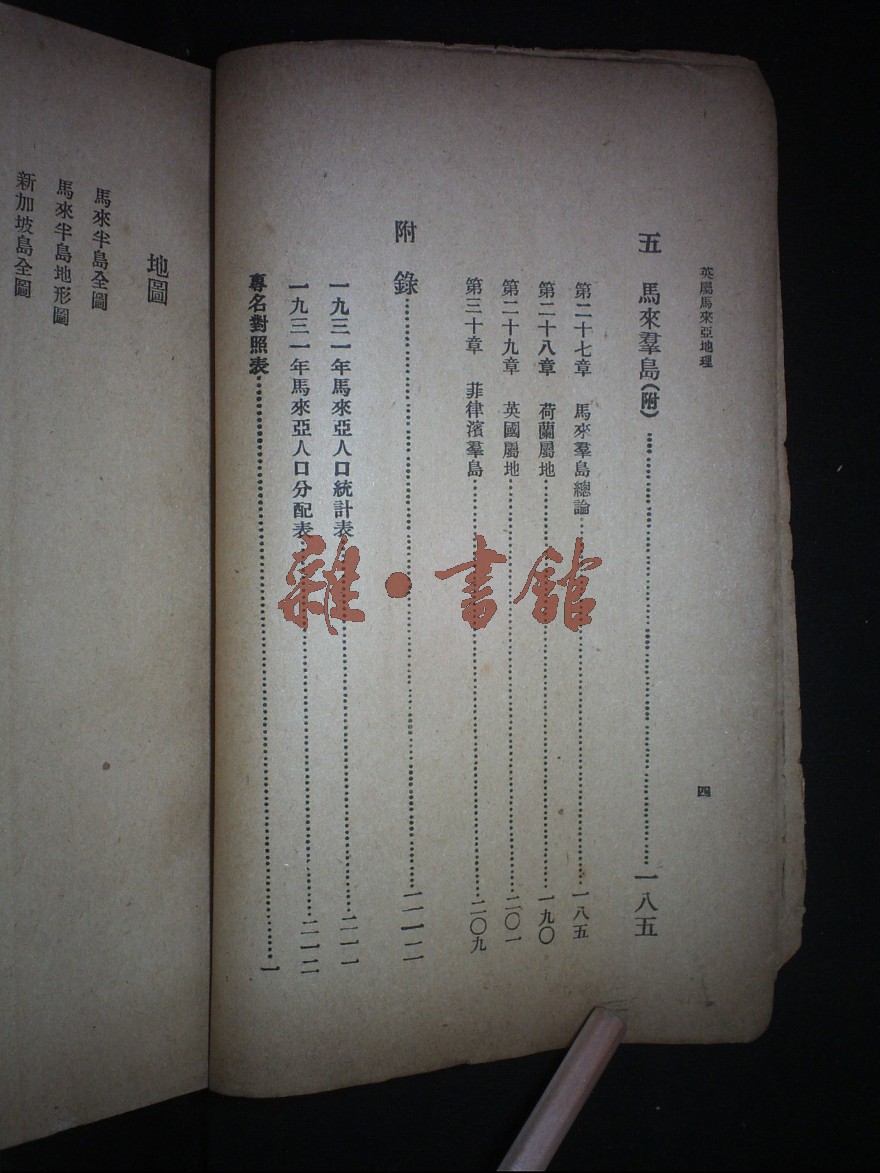 英屬馬來亞地理
四
五 馬來羣島(附)……一八五
第二十七章 馬來羣島總論……一八五
第二十八章 荷蘭屬地……一九〇
第二十九章 英國屬地……二〇一
第三十章 菲律濱羣島……二〇九
附錄……二一二
一九三一年馬來亞人口統計表……二一一
一九三一年馬來亞人口分配表……二一二
專名對照表……一
地圖
馬來半島全圖
馬來半島地形圖
新加坡島全圖
雜·書館